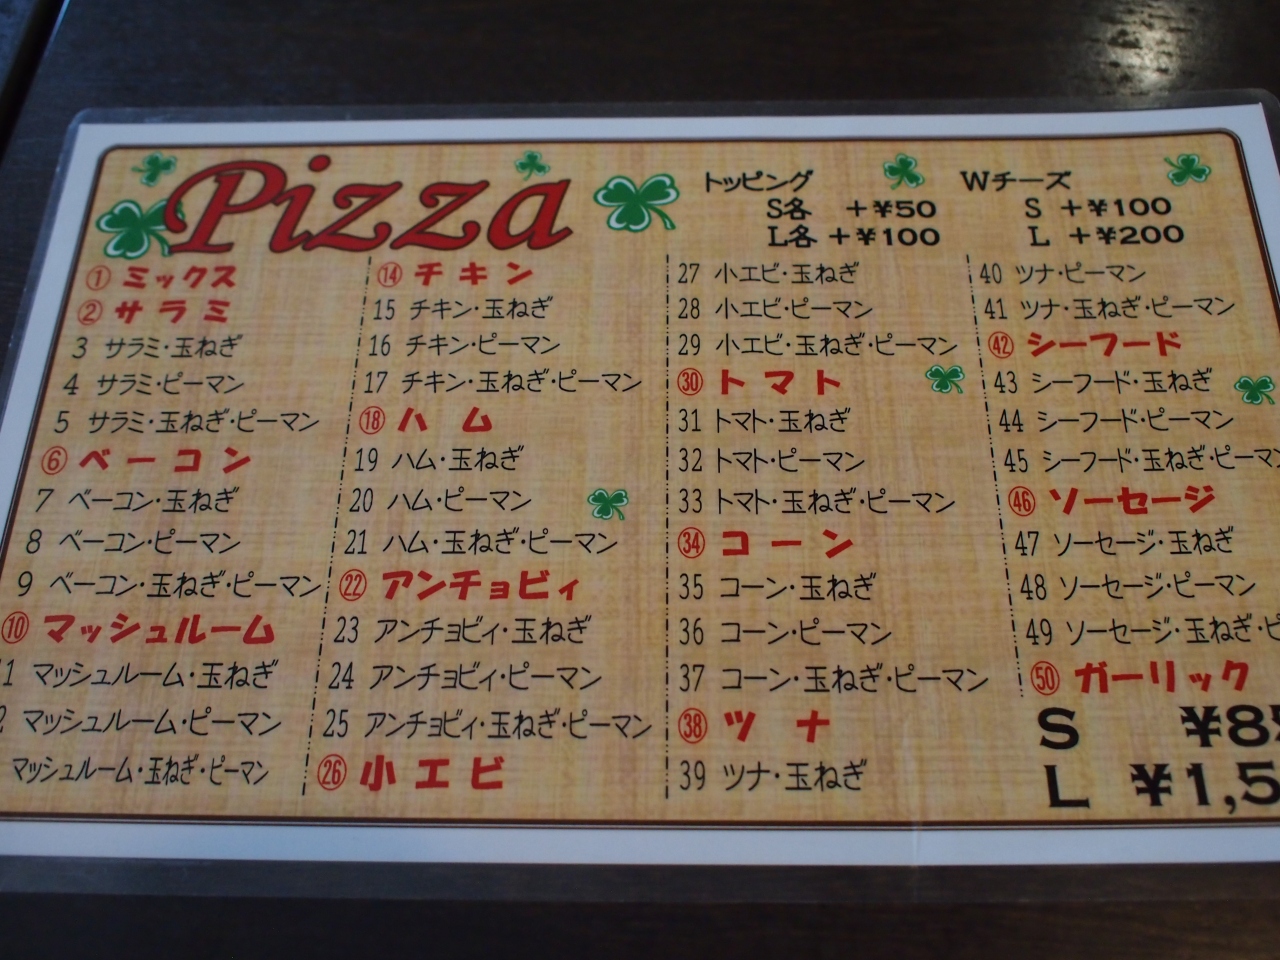 Pizza
トッピング
S各 +¥50
L各 +¥100
Wチーズ
S +¥100
L +¥200
① ミックス
② サラミ
3 サラミ・玉ねぎ
4 サラミ・ピーマン
5 サラミ・玉ねぎ・ピーマン
⑥ ベーコン
7 ベーコン・玉ねぎ
8 ベーコン・ピーマン
9 ベーコン・玉ねぎ・ピーマン
⑩ マッシュルーム
1 マッシュルーム・玉ねぎ
2 マッシュルーム・ピーマン
マッシュルーム・玉ねぎ・ピーマン
⑭ チキン
15 チキン・玉ねぎ
16 チキン・ピーマン
17 チキン・玉ねぎ・ピーマン
⑱ ハム
19 ハム・玉ねぎ
20 ハム・ピーマン
21 ハム・玉ねぎ・ピーマン
㉒ アンチョビィ
23 アンチョビィ・玉ねぎ
24 アンチョビィ・ピーマン
25 アンチョビィ・玉ねぎ・ピーマン
㉖ 小エビ
27 小エビ・玉ねぎ
28 小エビ・ピーマン
29 小エビ・玉ねぎ・ピーマン
㉚ トマト
31 トマト・玉ねぎ
32 トマト・ピーマン
33 トマト・玉ねぎ・ピーマン
㉞ コーン
35 コーン・玉ねぎ
36 コーン・ピーマン
37 コーン・玉ねぎ・ピーマン
㊳ ツナ
39 ツナ・玉ねぎ
40 ツナ・ピーマン
41 ツナ・玉ねぎ・ピーマン
㊷ シーフード
43 シーフード・玉ねぎ
44 シーフード・ピーマン
45 シーフード・玉ねぎ・ピーマン
㊻ ソーセージ
47 ソーセージ・玉ねぎ
48 ソーセージ・ピーマン
49 ソーセージ・玉ねぎ・ピ
㊿ ガーリック
S ¥8
L ¥1,5